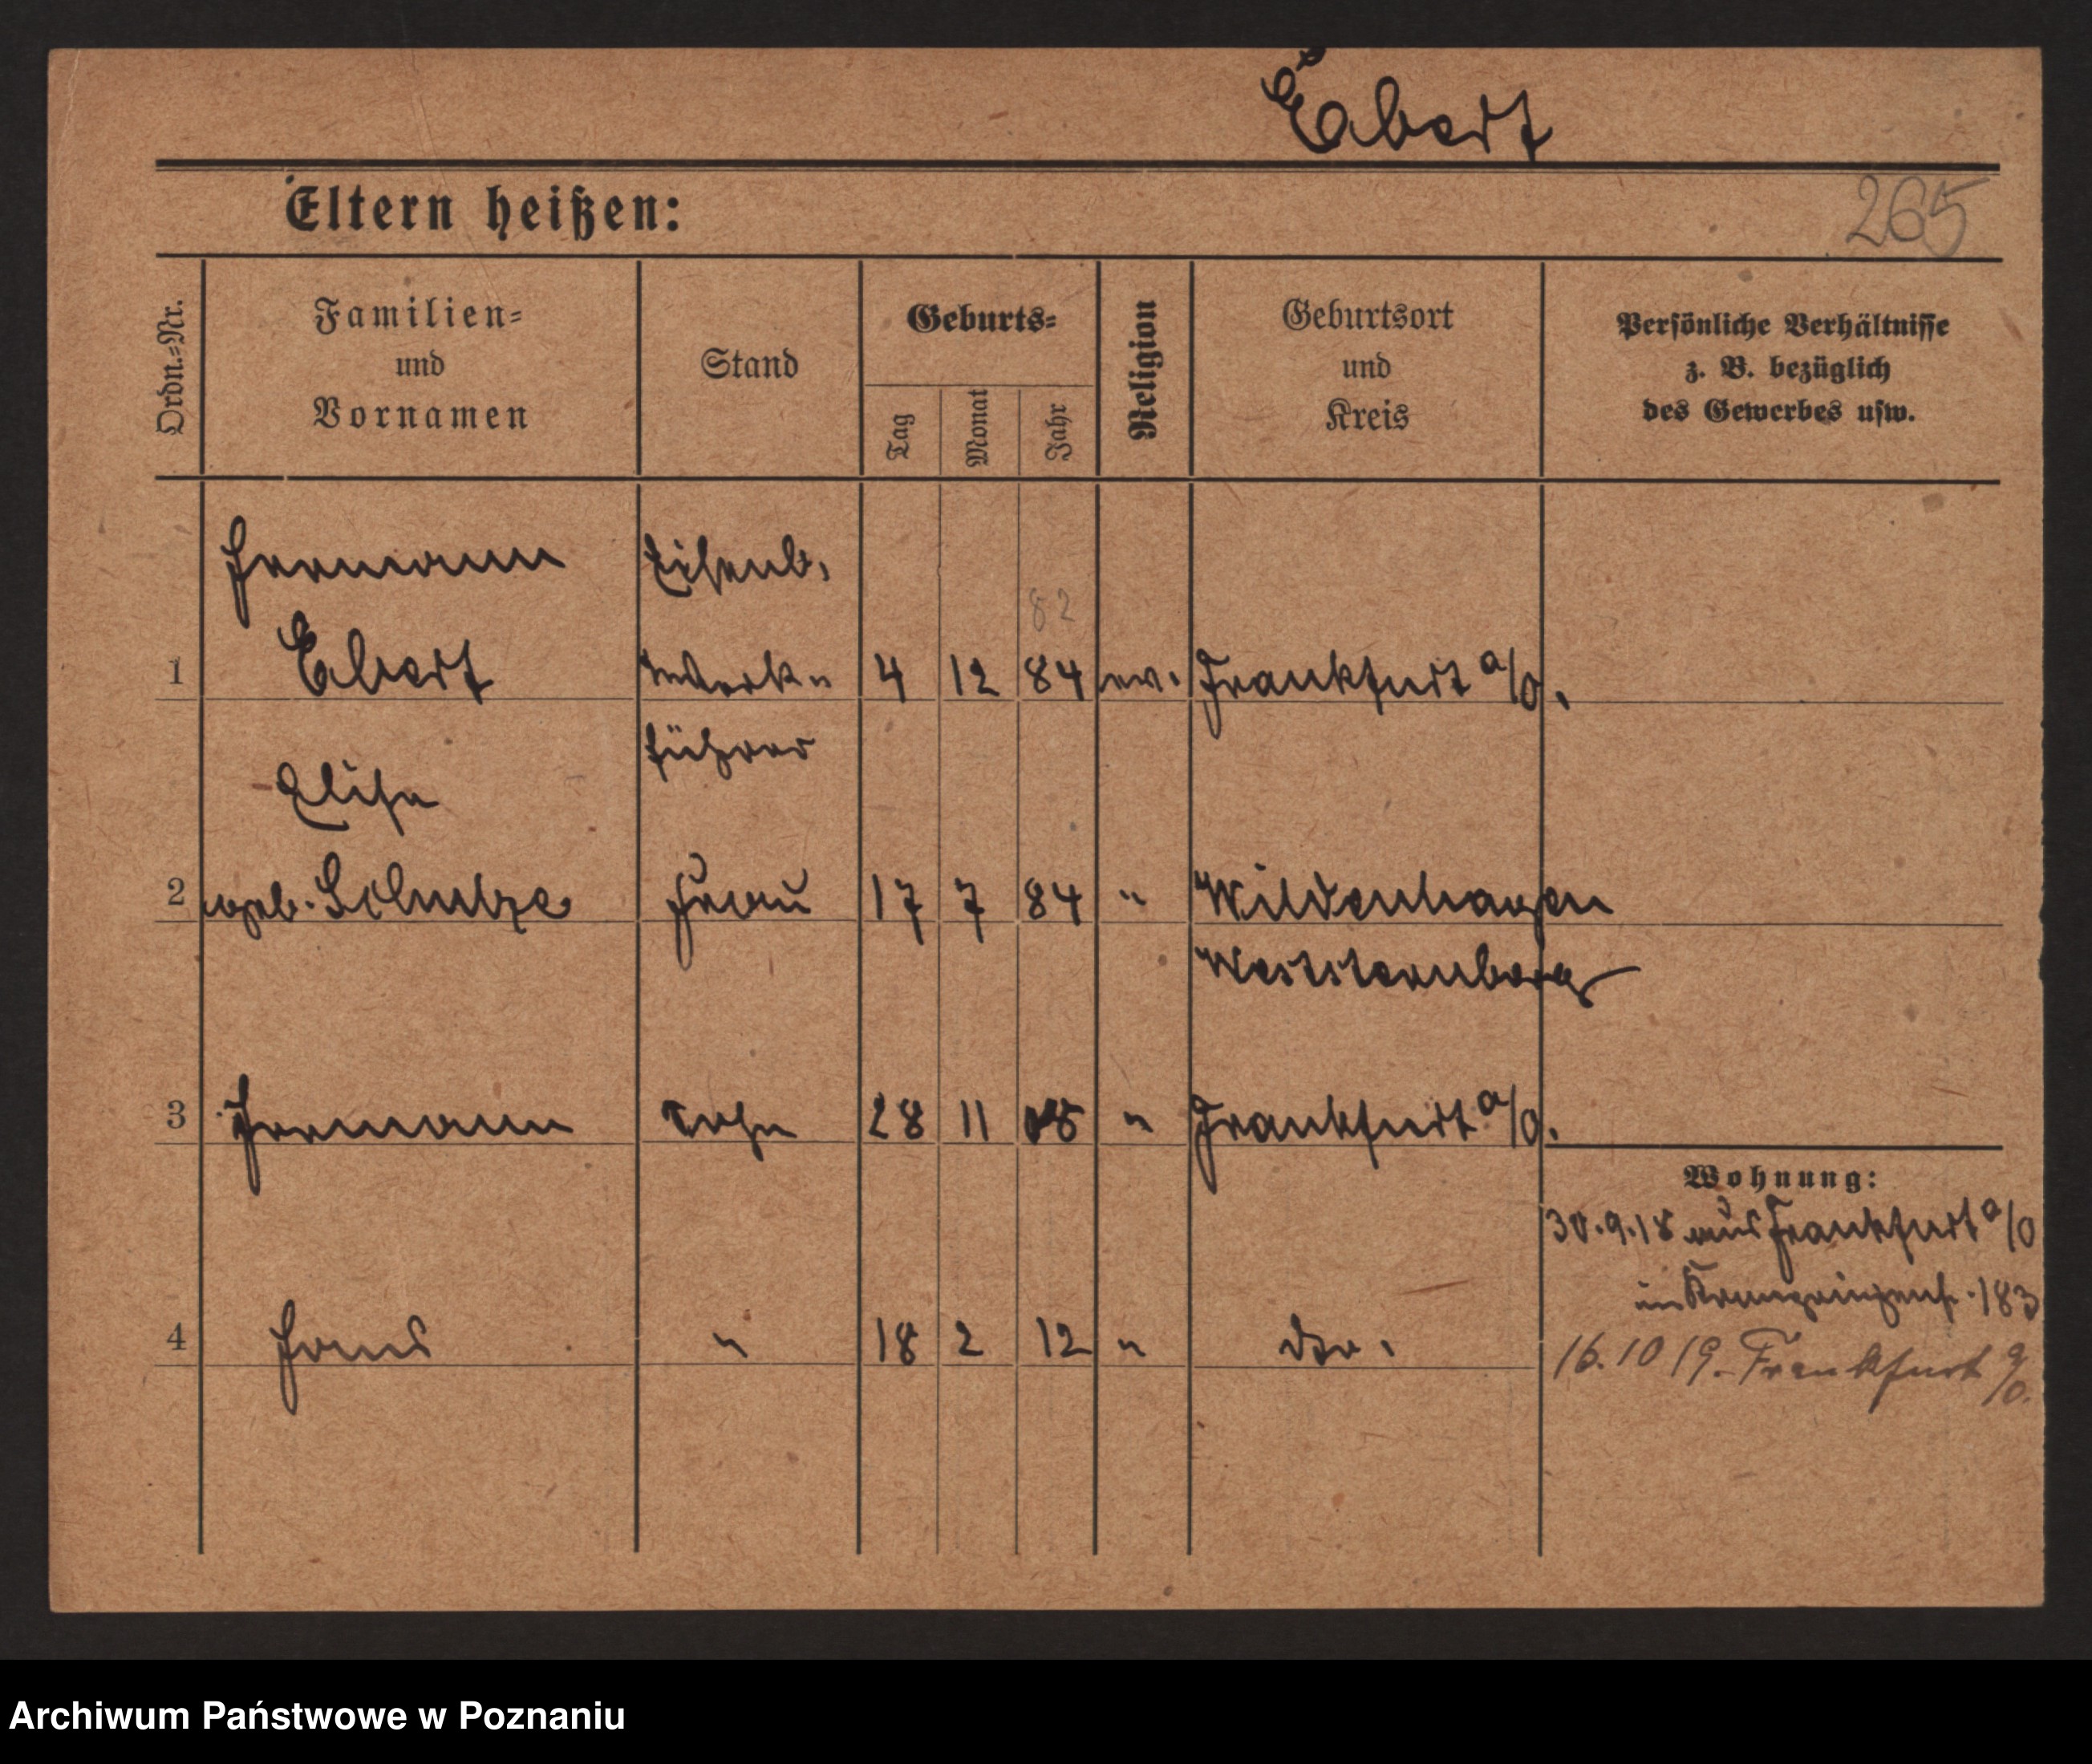 Ebert
Eltern heißen:
265
Ordn.-Nr.
Familien-
und
Vornamen
Stand
Geburts-
Tag
Monat
Jahr
Religion
Geburtsort
und
Kreis
Persönliche Verhältnisse
z. B. bezüglich
des Gewerbes usw.
Hermann Eisenb.
82
1 Ebert Werk- 4 12 84 ev. Frankfurt a/O.
führer
Elise
2 geb. Schulze Frau 17 7 84 " Wildenhagen
Weststernberg
3 Hermann Sohn 28 11 08 " Frankfurt a/O.
Wohnung:
30.9.18 aus Frankfurt a/O
in Kronprinzenst. 183
4 Hans " 18 2 12 " do.
16.10 19. Frankfurt a/O.
Archiwum Państwowe w Poznaniu